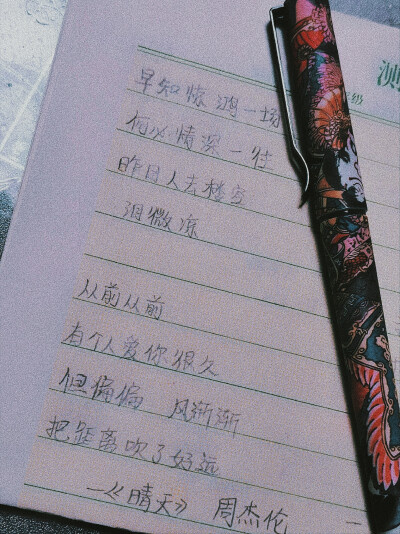 测
级
早知惊鸿一场
何必情深一往
昨日人去楼空
泪微凉
从前从前
有个人爱你很久
但偏偏 风渐渐
把距离吹了好远
—《晴天》 周杰伦